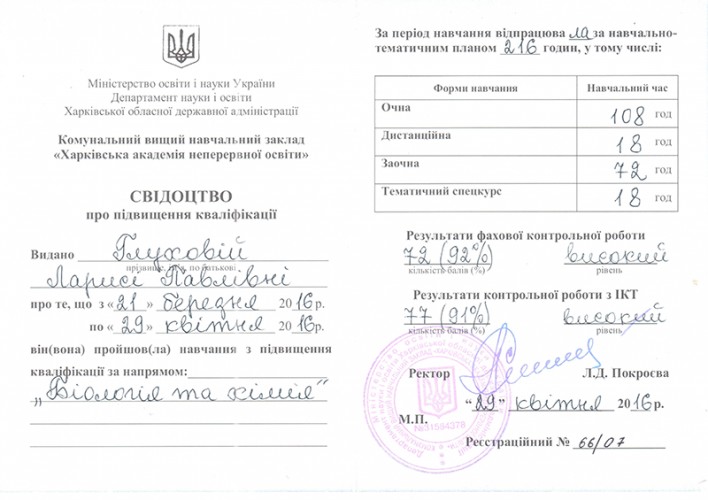 Міністерство освіти і науки України
Департамент науки і освіти
Харківської обласної державної адміністрації
Комунальний вищий навчальний заклад
«Харківська академія неперервної освіти»
СВІДОЦТВО
про підвищення кваліфікації
Видано Глуховій
прізвище, ім'я, по батькові
Ларисі Павлівні
про те, що з «21» березня 2016р.
по «29» квітня 2016р.
він(вона) пройшов(ла) навчання з підвищення
кваліфікації за напрямом:
„Біологія та хімія"
За період навчання відпрацювала за навчально-
тематичним планом 216 годин, у тому числі:
Форми навчання Навчальний час
Очна 108 год
Дистанційна 18 год
Заочна 72 год
Тематичний спецкурс 18 год
Результати фахової контрольної роботи
72 (92%) високий
кількість балів (%) рівень
Результати контрольної роботи з ІКТ
77 (91%) високий
кількість балів (%) рівень
Ректор Л.Д. Покроєва
"29" квітня 2016р.
М.П.
Реєстраційний № 66/07